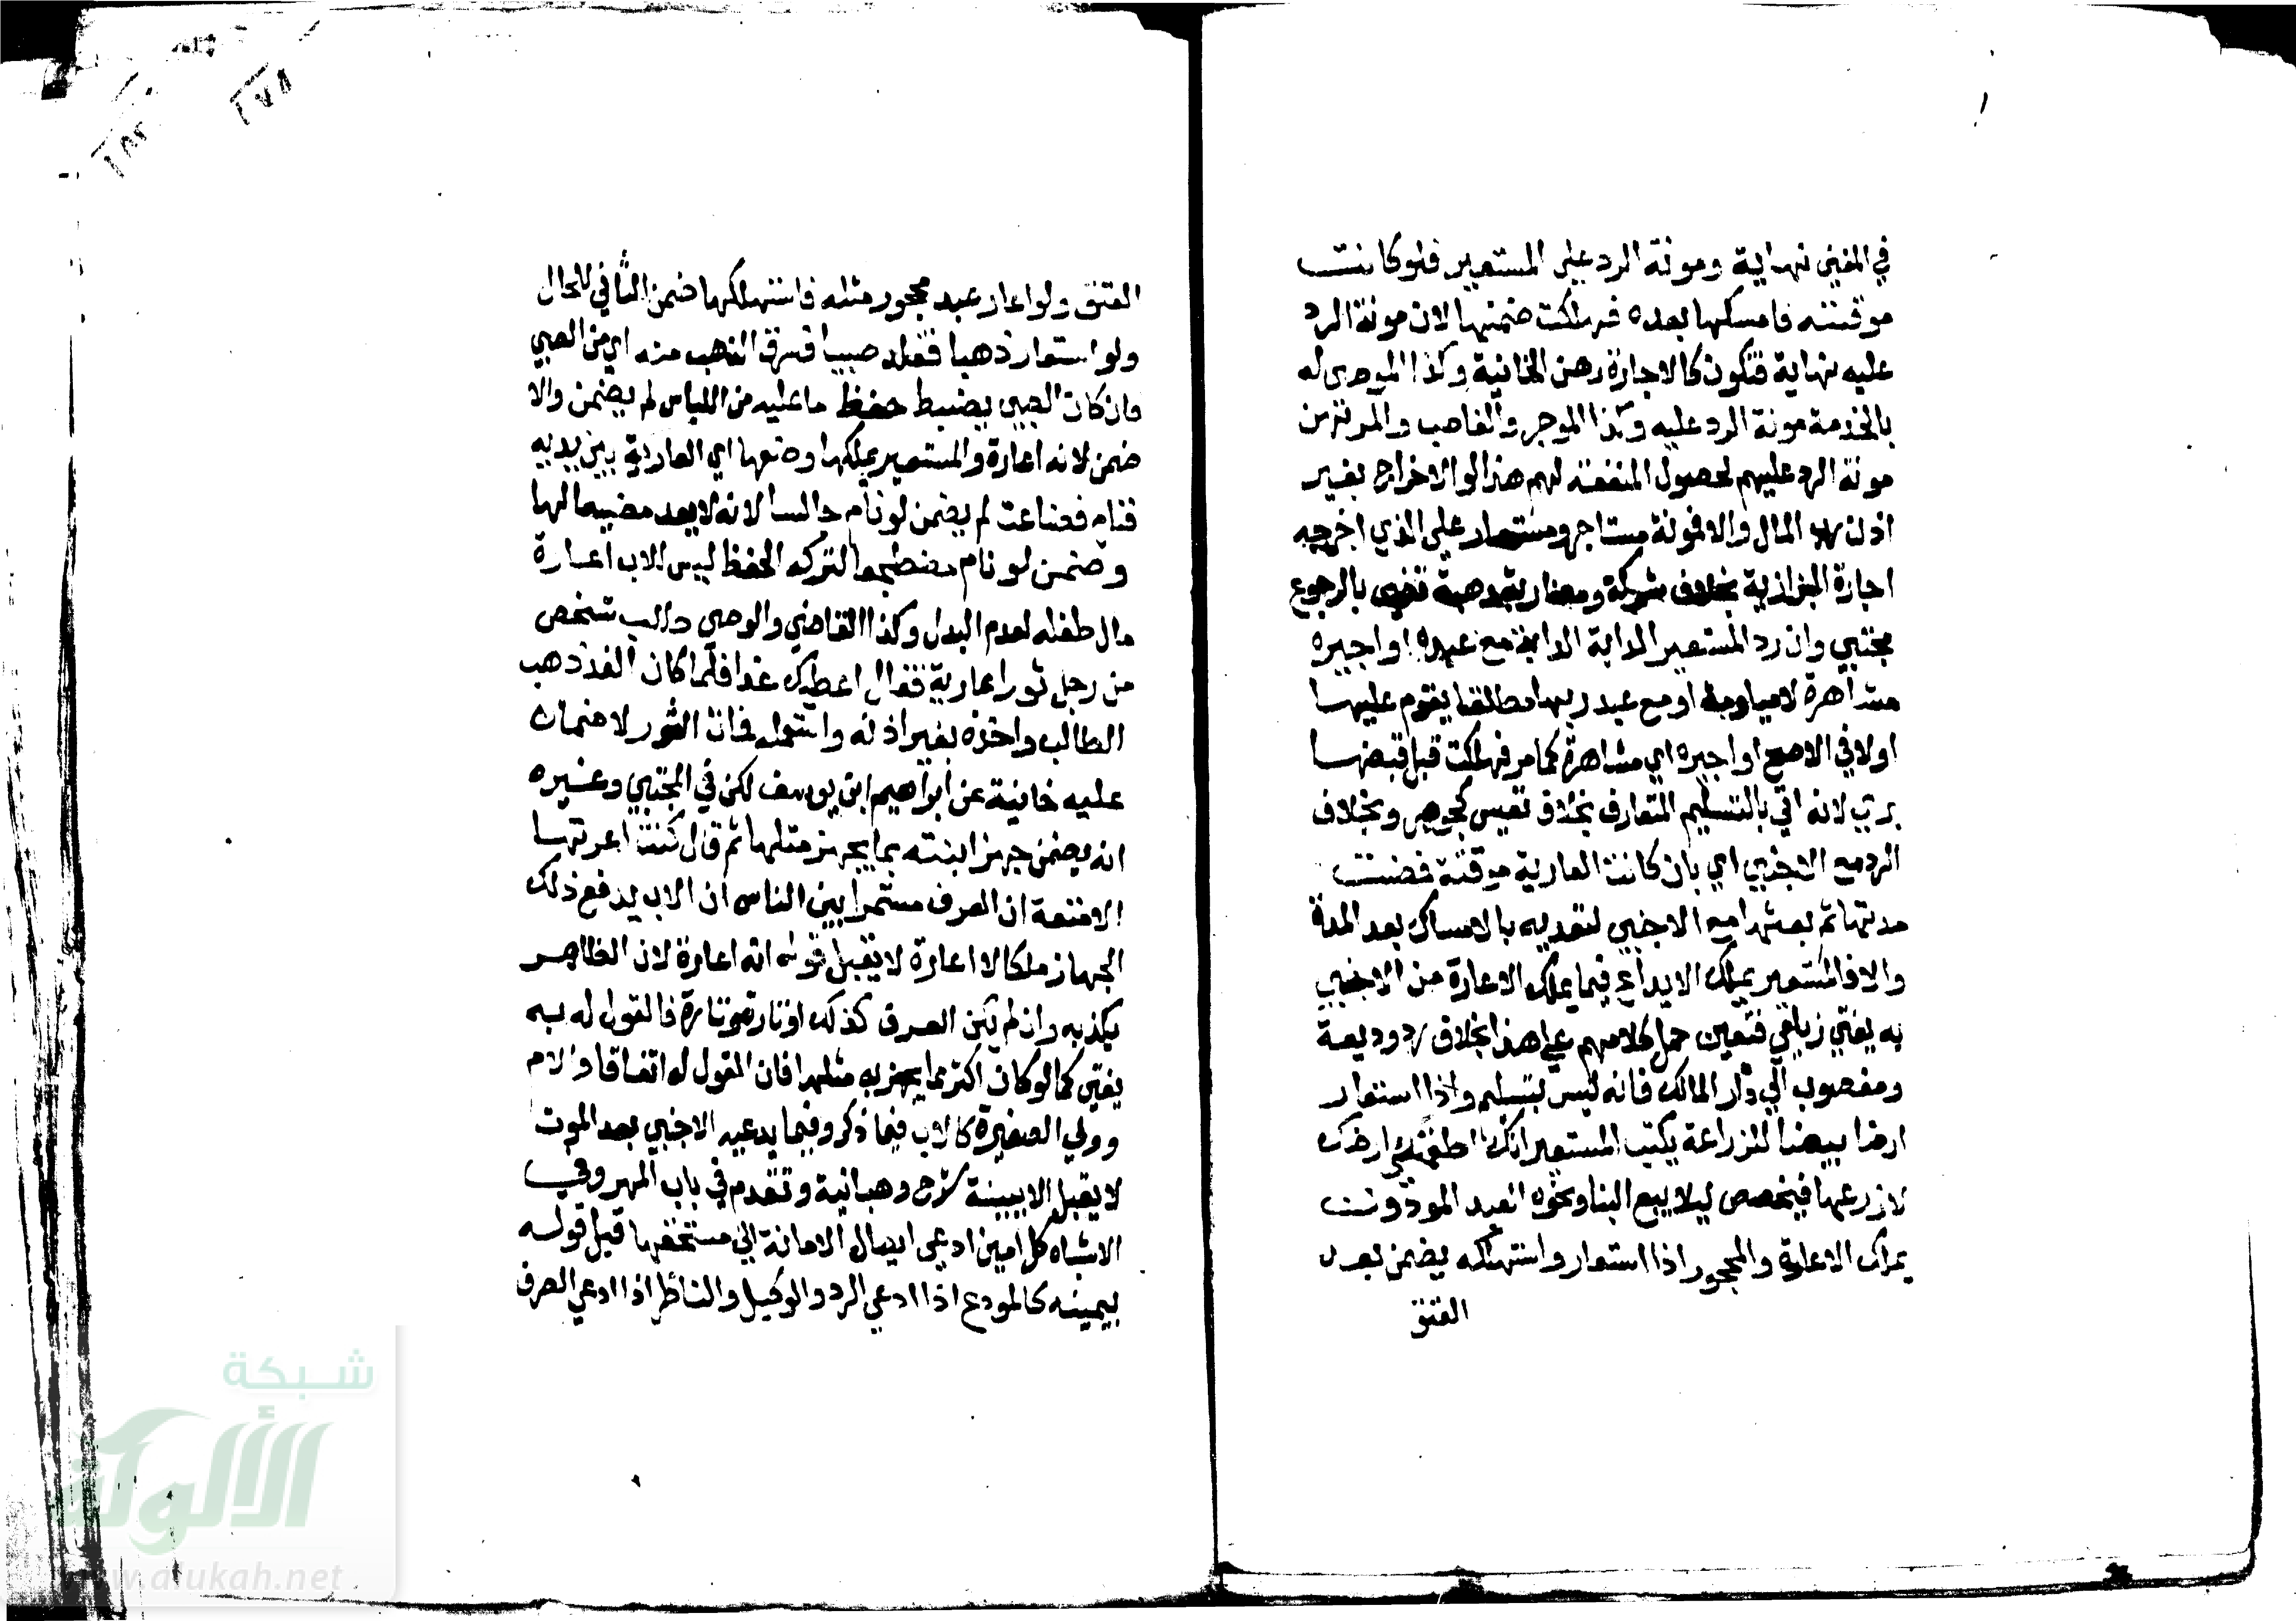 في المغني نهاية ومونة الرد علي المستعير فلو كانت
موقتته فامسكها بعده فهلكت ضمنها لان مونة الرد
عليه نهاية فتكون كالاجارة رهن الخانية وكذا الموصي له
بالخدمة مونة الرد عليه وكذا الموجر والغاصب والمرتهن
مونة الرد عليهم لحصول المنفعة لهم هذا لو الاخراج بغير
اذن رب المال والا فمونة مستاجر ومستعار علي الذي اخرجه
اجارة البزازية بخلاف شركة ومضاربة وهبة قضي بالرجوع
مجتبي وان رد المستعير الدابة مع عبده او اجيره
مشاهرة لا مياومة او مع عبد ربها مطلقا يقوم عليها
اولا في الاصح او اجيره اي مشاهرة كما مر فهلكت قبل قبضها
بري لانه اتي بالتسليم المتعارف بخلاف نفيس كجوهر وبخلاف
الرد مع الاجنبي اي بان كانت العارية موقتة فمضت
مدتها ثم بعثها مع الاجنبي لتعديه بالامساك بعد المدة
والا فالمستعير يملك الايداع فيما يملك الاعارة من الاجنبي
به يفتي زيلعي فتعين حمل كلامهم علي هذا بخلاف رد وديعة
ومغصوب الي دار المالك فانه ليس بتسليم واذا استعار
ارضا بيضا للزراعة يكتب المستعير انك اطعمتني ارضك
لازرعها فيخصص ليلا يبيع البنا ونحوه العبد الماذون
يملك الاعارة والمحجور اذا استعار واستهلكه يضمن بعد
العتق
العتق ولو اعار عبد محجور مثله فاستهلكها ضمن الثاني للحال
ولو استعار ذهبا فقلد صبيا فسرق الذهب منه اي من الصبي
فان كان الصبي يضبط حفظ ما عليه من اللباس لم يضمن والا
ضمن لانه اعارة والمستعير يملكها وضعها اي العارية بين يديه
فنام فضاعت لم يضمن لو نام جالسا لانه لا يعد مضيعا لها
وضمن لو نام مضطجعا لتركه الحفظ ليس للاب اعارة
مال طفله لعدم البدل وكذا القاضي والوصي طلب شخص
من رجل ثورا عارية فقال اعطيك غدا فلما كان الغد ذهب
الطالب واخذه بغير اذنه واستعمله فمات الثور لا ضمان
عليه خانية عن ابراهيم ابن يوسف لكن في المجتبي وغيره
انه يضمن جهز ابنته بما يجهز مثلها ثم قال كنت اعرتها
الامتعة ان العرف مستمرا بين الناس ان الاب يدفع ذلك
الجهاز ملكا لا اعارة لا يقبل قوله انه اعارة لان الظاهر
يكذبه وان لم يكن العرف كذلك او تارة وتارة فالقول له به
يفتي كما لو كان اكثر مما يجهز به مثلها فان القول له اتفاقا والام
وولي الصغيرة كالاب فيما ذكر وفيما يدعيه الاجنبي بعد الموت
لا يقبل الا ببينة شرح وهبانية وتقدم في باب المهر وفي
الاشباه كل امين ادعي ايصال الامانة الي مستحقها قبل قوله
بيمينه كالمودع اذا ادعي الرد والوكيل والناظر اذا ادعي الصرف
٢٧٨
شبكة
الألوكة
www.alukah.net